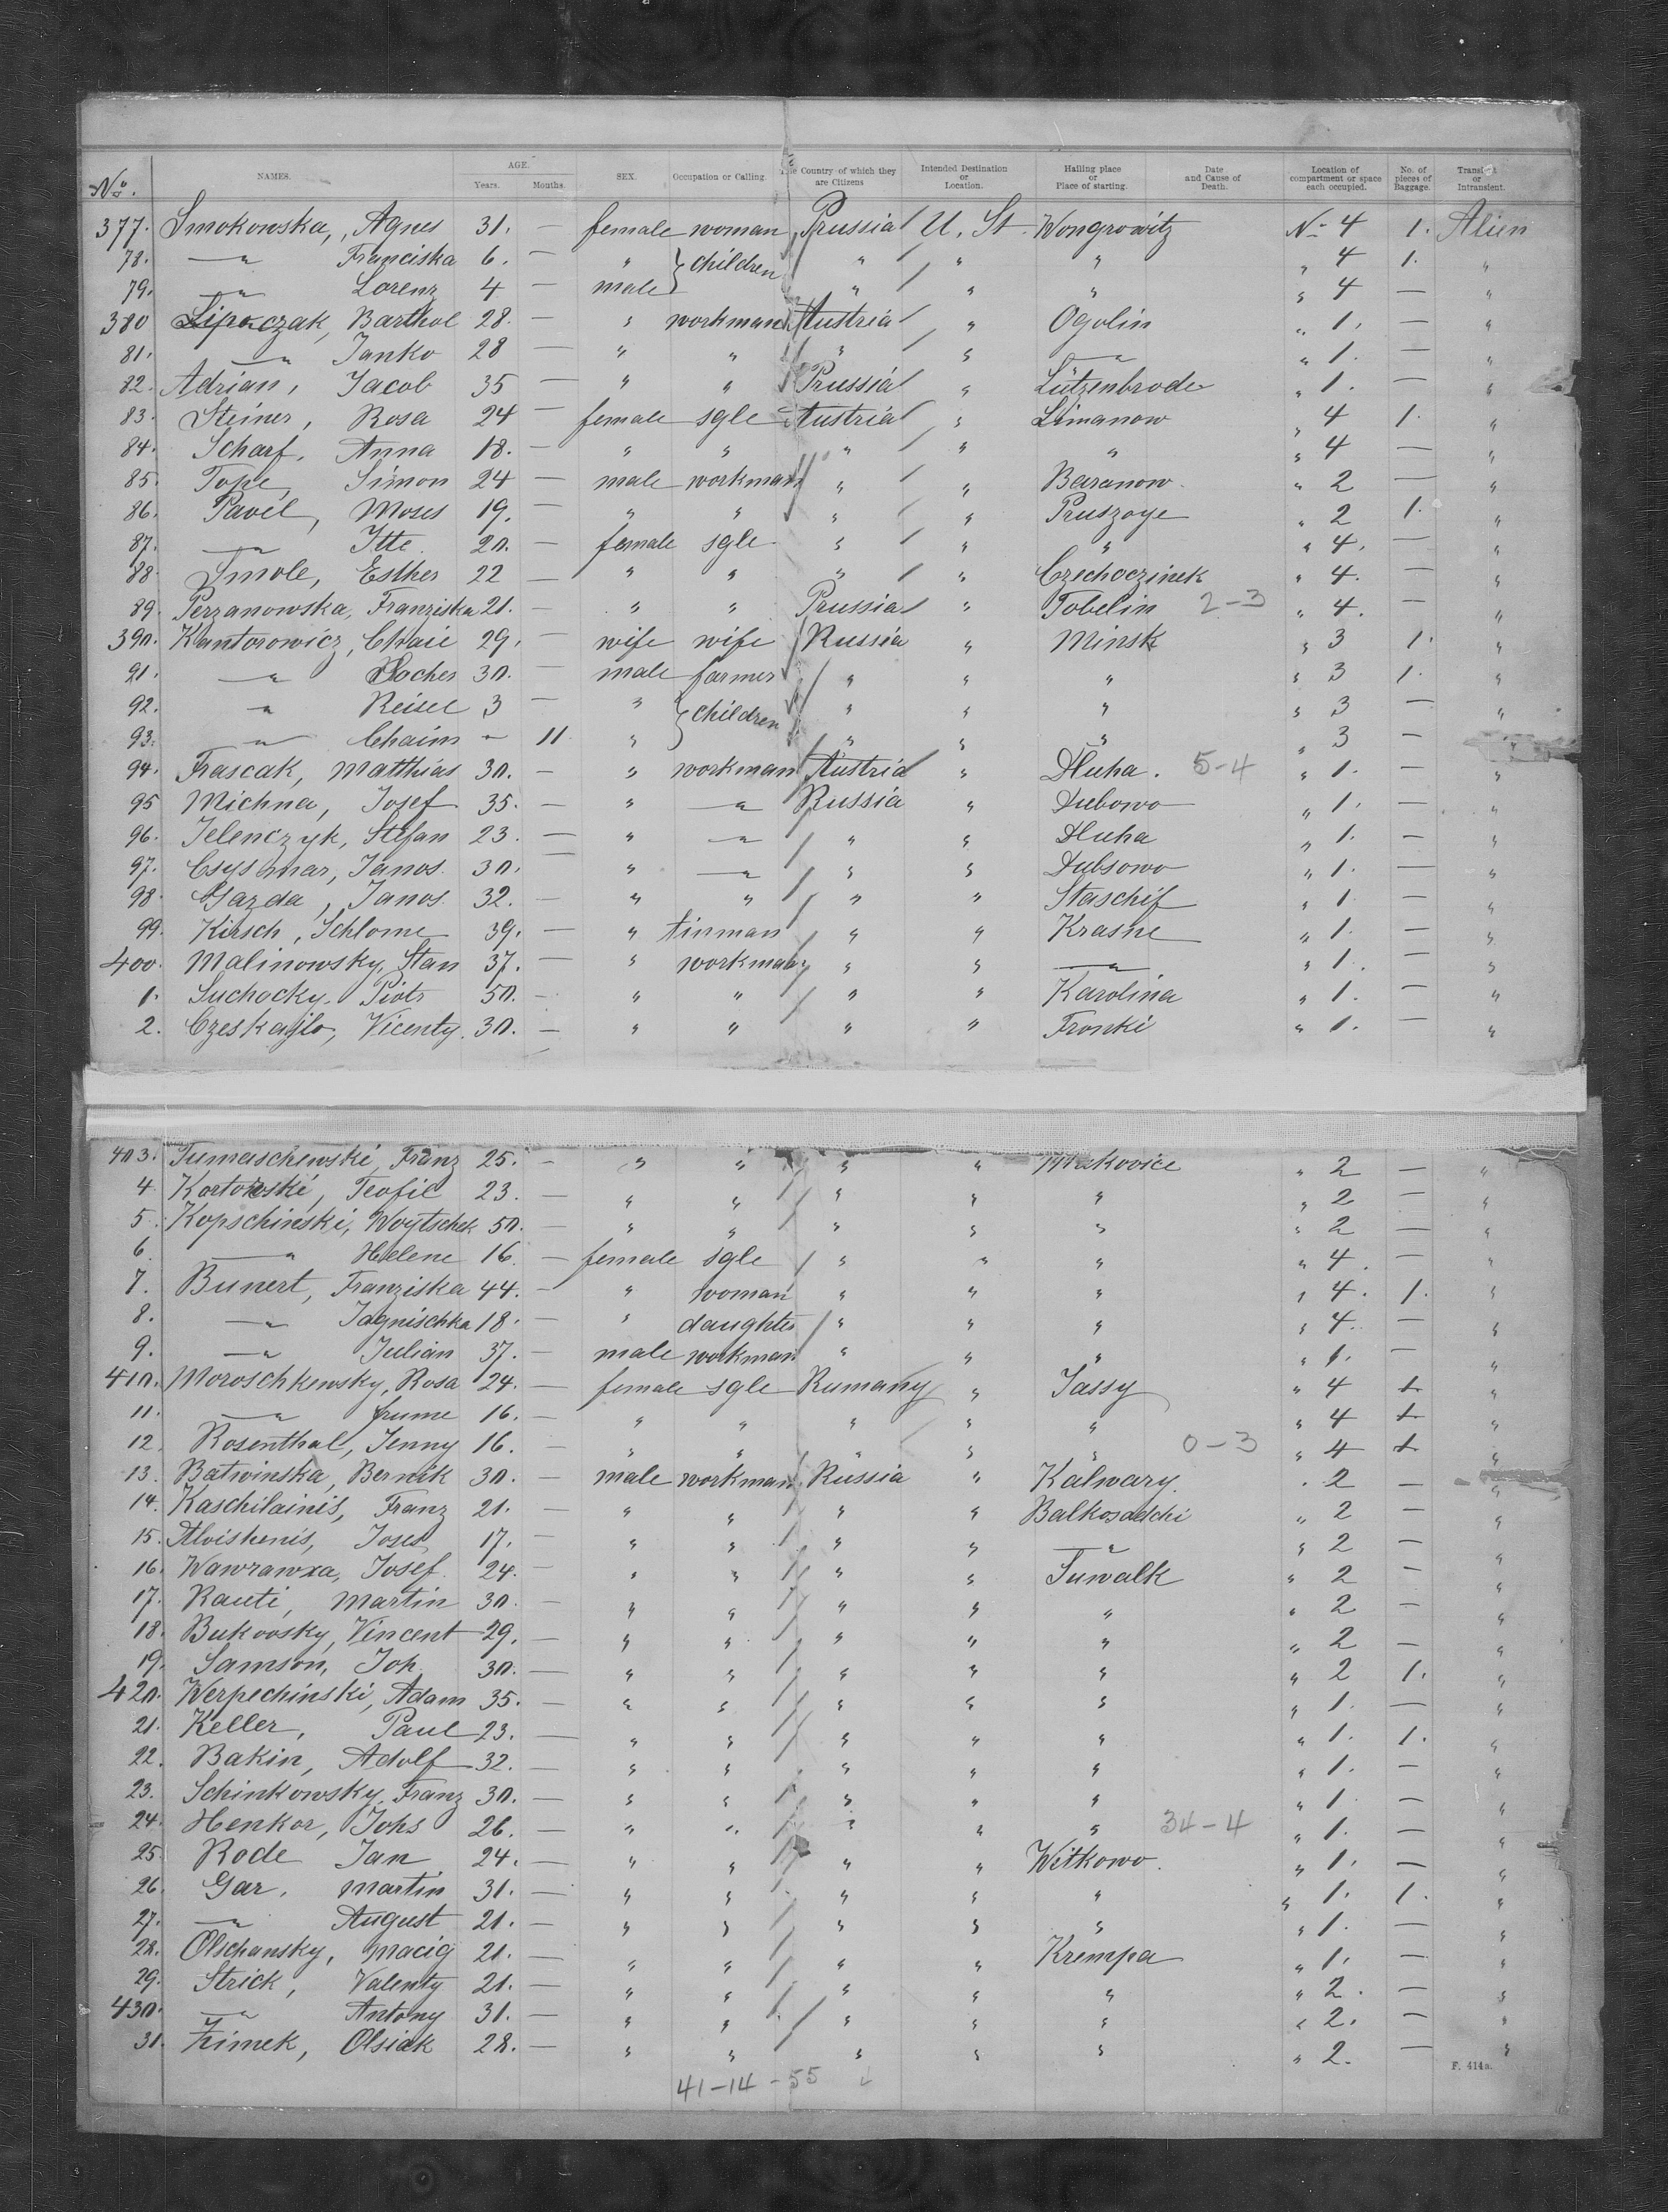 No. NAMES. AGE. Years. Months. SEX. Occupation or Calling. The Country of which they are Citizens Intended Destination or Location. Hailing place or Place of starting. Date and Cause of Death. Location of compartment or space each occupied. No. of pieces of Baggage. Transient or Intransient.
377. Smokowska, Agnes 31. — female woman Prussia U. St. Wongrowitz No 4 1. Alien
78. —"— Franciska 6. — " } children " " " " 4 1. "
79. —"— Lorenz 4 — male " " " " 4 — "
380 Lipaczak, Barthol 28. — " workman Austria " Ogolin " 1. — "
81. —"— Janko 28 — " " " " —"— " 1. — "
82. Adrian, Jacob 35 — " " Prussia " Lützenbrode " 1. — "
83. Steiner, Rosa 24 — female sgle Austria " Limanow " 4 1. "
84. Scharf, Anna 18. — " " " " " " 4 — "
85. Tope, Simon 24 — male workman " " Baranow. " 2 — "
86. Pavel, Moses 19. — " " " " Pruszoye " 2 1. "
87. —"— Itte 20. — female sgle " " " " 4. — "
88. Smole, Esther 22 — " " " " Czechoczinek " 4. — "
89. Perzanowska, Franziska 21. — " " Prussia " Tobelin 2-3 " 4. — "
390. Kantorowicz, Chaie 29. — wife wife Russia " Minsk " 3 1. "
91. —"— Socher 30. — male farmer " " " " 3 1. "
92. " Reisel 3 — " } children " " " " 3 — "
93. —"— Chaim — 11 " " " " " 3 — "
94. Frascak, Matthias 30. — " workman Austria " Dluha. 5-4 " 1. — "
95 Michna, Josef 35. — " —"— Russia " Dubowo " 1. — "
96. Jelenczyk, Stefan 23. — " —"— " " Dluha " 1. — "
97. Csysmar, Janos 30. — " —"— " " Dubsowo " 1. — "
98. Gazda, Janos 32. — " " " " Staschif " 1 — "
99. Kirsch, Schlome 39. — " tinman " " Krasne " 1. — "
400. Malinowsky, Stan 37. — " workman " " —"— " 1. — "
1. Suchocky, Piotr 50. — " " " " Karolina " 1. — "
2. Czeskajlo, Vicenty 30. — " " " " Fronki " 1. — "
403. Tumaschewski, Franz 25. — " " " " " 2 — "
4 Kortowski, Teofil 23. — " " " " " " 2 — "
5. Kopschinski, Woytschek 50. — " " " " " " 2 — "
6. —"— Helene 16. — female sgle " " " " 4. — "
7. Bunert, Franziska 44. — " woman " " " " 4. 1. "
8. —"— Jagnischka 18. — " daughter " " " " 4. — "
9. —"— Julian 37. — male workman " " " " 1. — "
410. Moroschkewsky, Rosa 24. — female sgle Rumany " Jassy " 4 1. "
11. —"— frume 16. — " " " " " " 4 1. "
12. Rosenthal, Jenny 16. — " " " " " 0-3 " 4 1. "
13. Batwinska, Bernik 30. — male workman Russia " Kalwary. " 2 — "
14. Kaschilainis, Franz 21. — " " " " Balkosadchi " 2 — "
15. Aloiskenis, Joses 17. — " " " " —"— " 2 — "
16. Wawrawxa, Josef 24. — " " " " Suwalk " 2 — "
17. Rauti, Martin 30. — " " " " " " 2 — "
18. Bukovsky, Vincent 29. — " " " " " " 2 — "
19. Samson, Joh. 30. — " " " " " " 2 1. "
420. Werpechinski, Adam 35. — " " " " " " 1. — "
21. Keller, Paul 23. — " " " " " " 1. 1. "
22. Bakin, Adolf 32. — " " " " " " 1. — "
23. Schinkowsky, Franz 30. — " " " " " " 1. — "
24. Henkor, Johs 26. — " " " " " 34-4 " 1. — "
25. Rode Jan 24. — " " " " Witkowo. " 1. — "
26. Gar, Martin 31. — " " " " " " 1. 1. "
27. —"— August 21. — " " " " " " 1. — "
28. Olschansky, Macig 21. — " " " " Krempa " 1. — "
29. Strick, Valenty 21. — " " " " " " 2. — "
430. —"— Antony 31. — " " " " " " 2. — "
31. Zimek, Olsiak 28. — " " " " " " 2. — "
F. 414a.
41-14-55